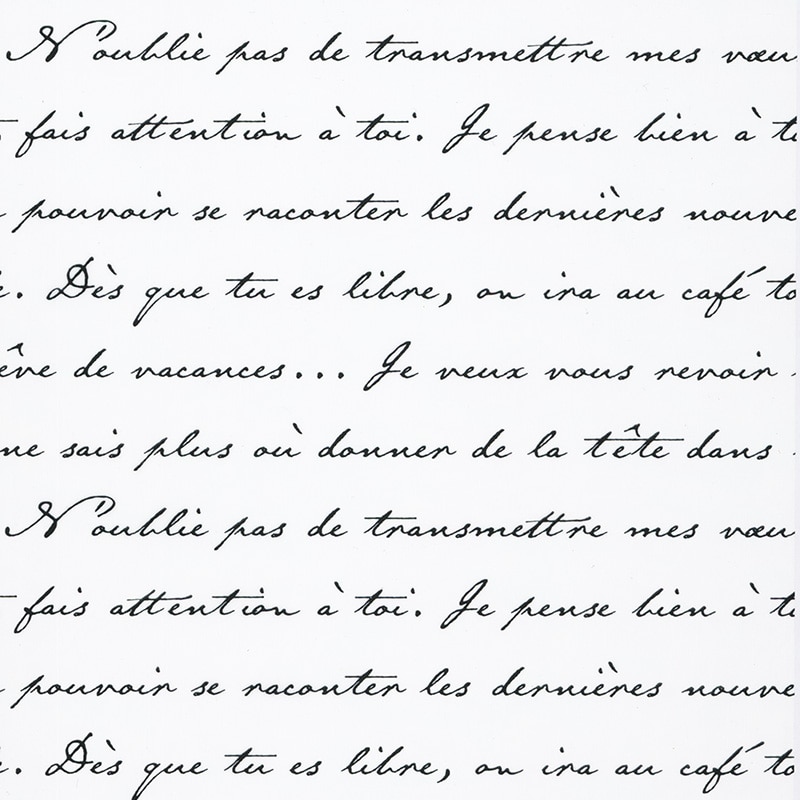 N'oublie pas de transmettre mes vœu
fais attention à toi. Je pense bien à to
pouvoir se raconter les dernières nouve
. Dès que tu es libre, on ira au café to
êve de vacances... Je veux vous revoir
ne sais plus où donner de la tête dans
N'oublie pas de transmettre mes vœu
fais attention à toi. Je pense bien à to
pouvoir se raconter les dernières nouve
. Dès que tu es libre, on ira au café to